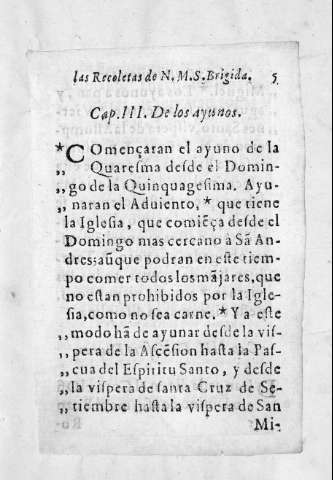 las Recoletas de N. M. S. Brigida. 5
Cap. III. De los ayunos.
*COmençaran el ayuno de la
,, Quaresma desde el Domin-
,, go de la Quinquagesima. Ayu-
naran el Aduiento, * que tiene
la Iglesia, que comiēça desde el
Domingo mas cercano à Sā An-
dres: aūque podran en este tiem-
po comer todos los mājares, que
no estan prohibidos por la Igle-
sia, como no sea carne. * Y a este
,, modo hā de ayunar desde la vis-
,, pera de la Ascēsion hasta la Pas-
,, cua del Espiritu Santo, y desde
,, la vispera de santa Cruz de Se-
,, tiembre hasta la vispera de San
Mi-